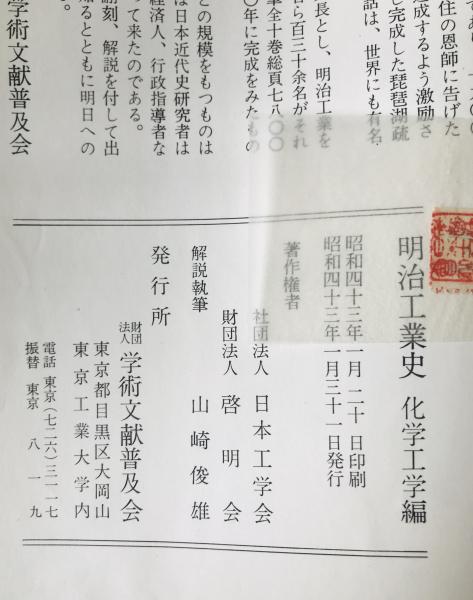 〇〇
住の恩師に告げた
成するよう激励さ
し完成した琵琶湖疏
話は、世界にも有名
長とし、明治工業を
名ら百三十余名がそれ
筆全十巻総頁七八〇〇
〇年に完成をみたもの
どの規模をもつものは
は日本近代史研究者は
経済人、行政指導者な
って来たのである。
翻刻、解説を付して出
知るとともに明日への
る。
学術文献普及会
明治工業史 化学工学編
昭和四十三年一月二十日印刷
昭和四十三年一月三十一日発行
著作権者
社団法人 日本工学会
財団法人 啓明会
解説執筆 山崎俊雄
発行所
財団法人 学術文献普及会
東京都目黒区大岡山
東京工業大学内
電話 東京(七二六)三一一七
振替 東京 八一九